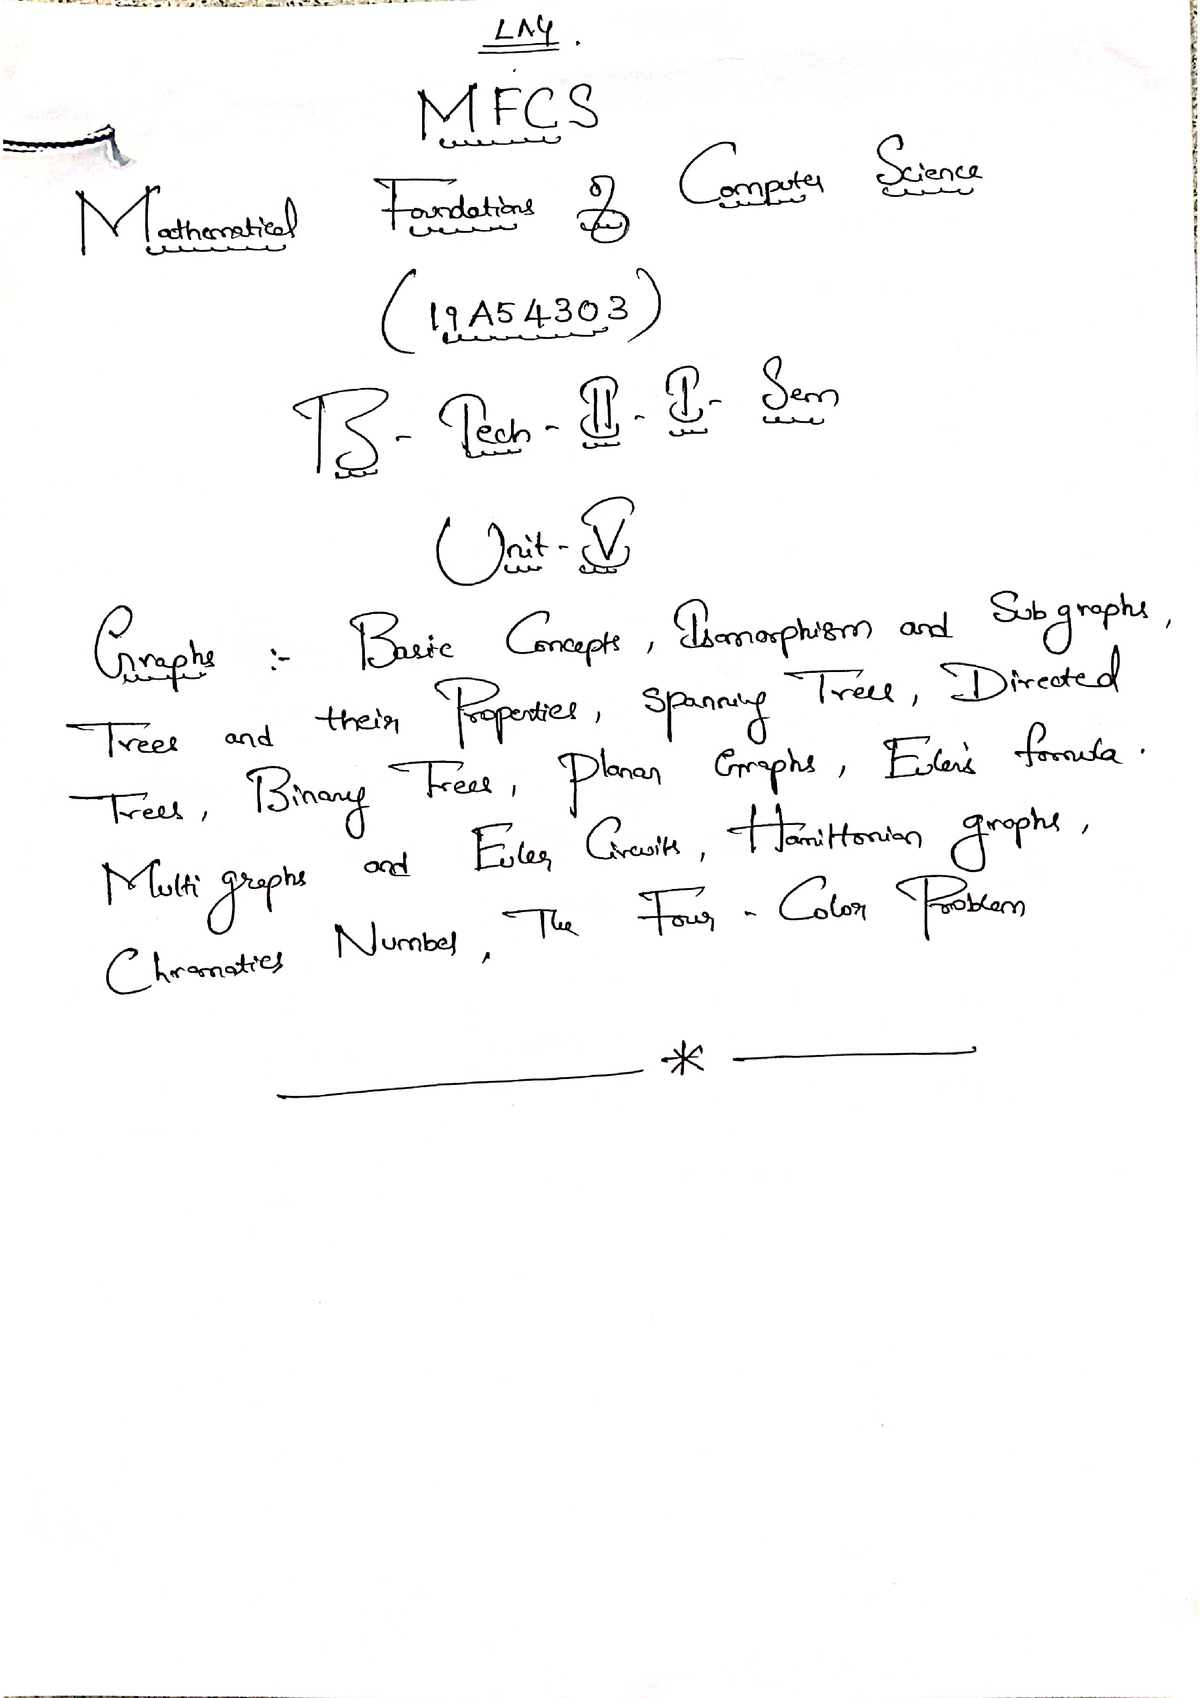 MFCS
Mathematical Foundations of Computer Science
(19A54303)
B-Tech-II-I-Sem
Unit-V
Graphs :- Basic Concepts, Isomorphism and Subgraphs,
Trees and their Properties, Spanning Trees, Directed
Trees, Binary Trees, Planar Graphs, Euler's formula.
Multi graphs and Euler Circuits, Hamiltonian graphs,
Chromatics Number, The Four-Color Problem